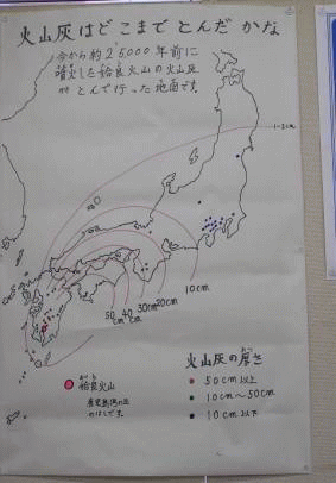 火山灰はどこまでとんだかな
今から約25000年前に
噴火した姶良火山の火山灰
がとんで行った地図です
1~2cm
10cm
20cm
30cm
40cm
50cm
姶良火山
火山灰の厚さ
あつ
50cm以上
10cm~50cm
10cm以下